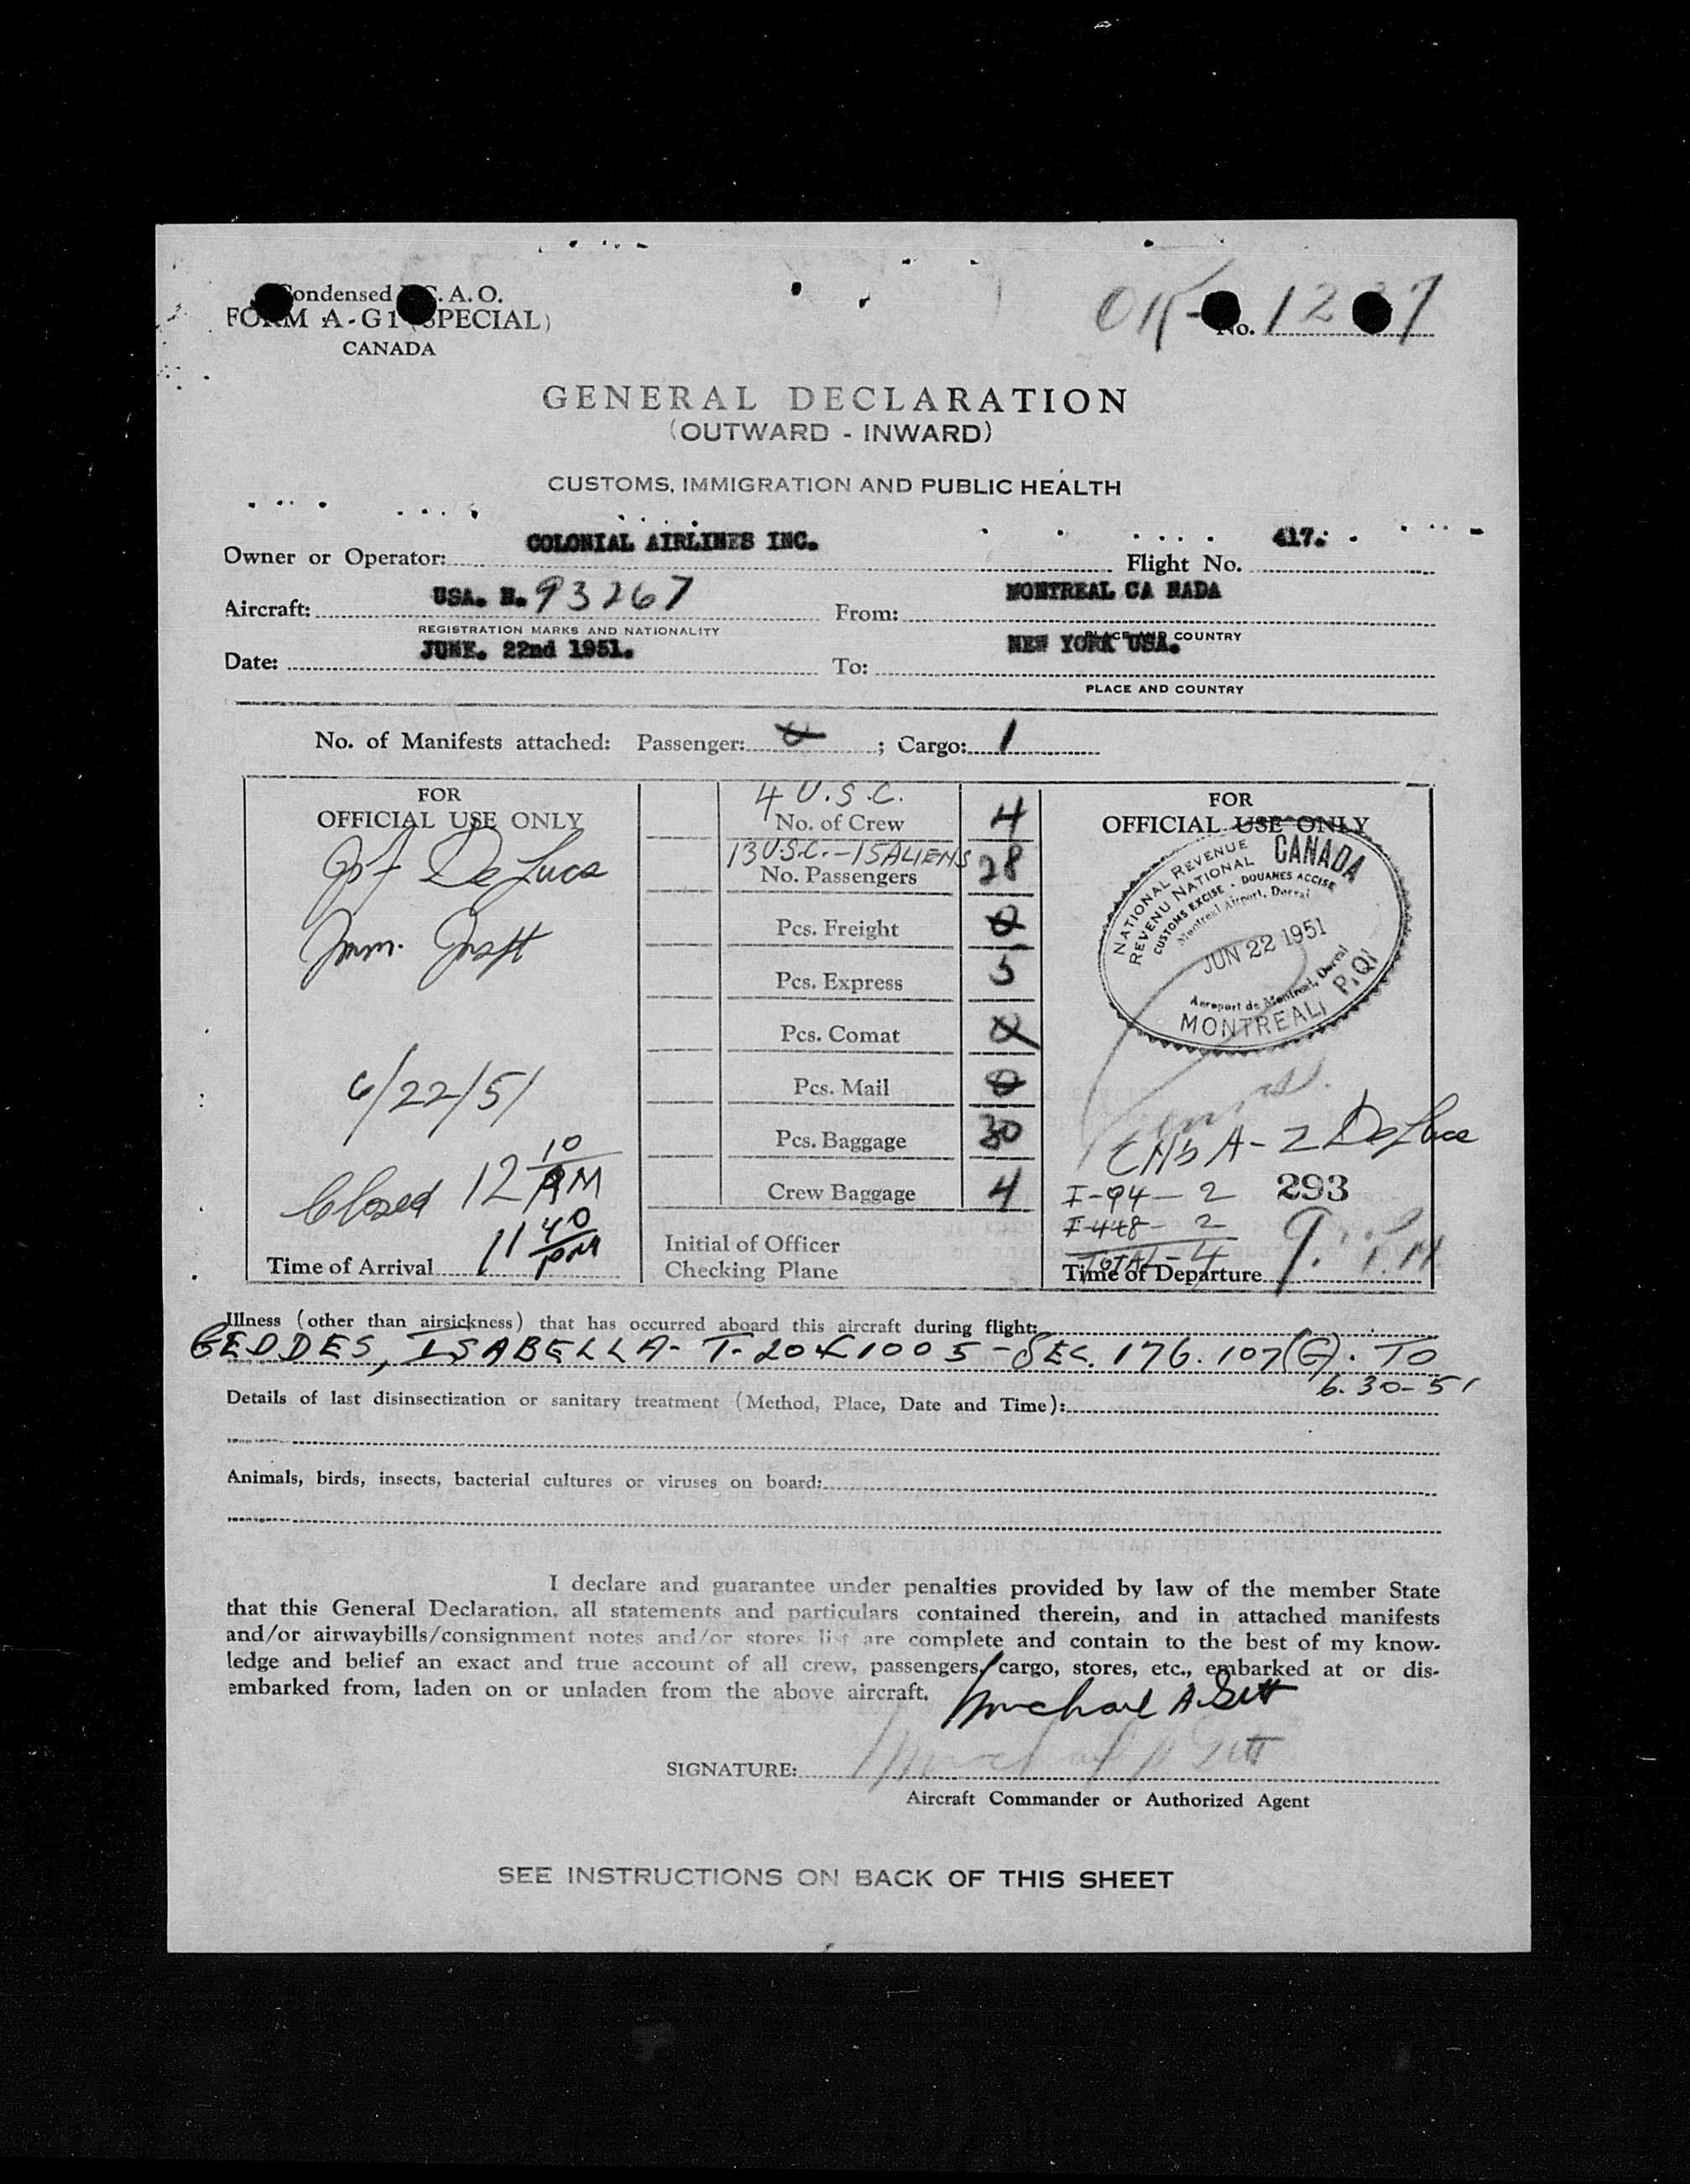 Condensed I.C.A.O.
FORM A-G1 (SPECIAL)
CANADA
OK- No. 12 7
GENERAL DECLARATION
(OUTWARD - INWARD)
CUSTOMS, IMMIGRATION AND PUBLIC HEALTH
Owner or Operator: COLONIAL AIRLINES INC. Flight No. 417.
Aircraft: USA. N. 93267 From: MONTREAL CA NADA
REGISTRATION MARKS AND NATIONALITY PLACE AND COUNTRY
Date: JUNE. 22nd 1951. To: NEW YORK USA.
PLACE AND COUNTRY
No. of Manifests attached: Passenger: 0 ; Cargo: 1
FOR
OFFICIAL USE ONLY
De Luca
Imm. Inspt
6/22/51
Closed 12 10 AM
11 40 PM
Time of Arrival
4 U.S.C.
No. of Crew 4
13 U.S.C. - 15 ALIENS
No. Passengers 28
Pcs. Freight 0
Pcs. Express 5
Pcs. Comat 0
Pcs. Mail 0
Pcs. Baggage 30
Crew Baggage 4
Initial of Officer
Checking Plane
FOR
OFFICIAL USE ONLY
NATIONAL REVENUE CANADA
REVENU NATIONAL
CUSTOMS EXCISE - DOUANES ACCISE
Montreal Airport, Dorval
JUN 22 1951
Aeroport de Montreal, Dorval
MONTREAL, P.Q.
A-2 De Luca
I-94 - 2 293
I-448 - 2
TOTAL - 4
Time of Departure
Illness (other than airsickness) that has occurred aboard this aircraft during flight:
GEDDES, ISABELLA - T-2041005 - SEC. 176.107(G). TO
6.30-51
Details of last disinsectization or sanitary treatment (Method, Place, Date and Time):
Animals, birds, insects, bacterial cultures or viruses on board:
I declare and guarantee under penalties provided by law of the member State
that this General Declaration, all statements and particulars contained therein, and in attached manifests
and/or airwaybills/consignment notes and/or stores list are complete and contain to the best of my know-
ledge and belief an exact and true account of all crew, passengers, cargo, stores, etc., embarked at or dis-
embarked from, laden on or unladen from the above aircraft.
Michael A.
SIGNATURE: Michael A
Aircraft Commander or Authorized Agent
SEE INSTRUCTIONS ON BACK OF THIS SHEET